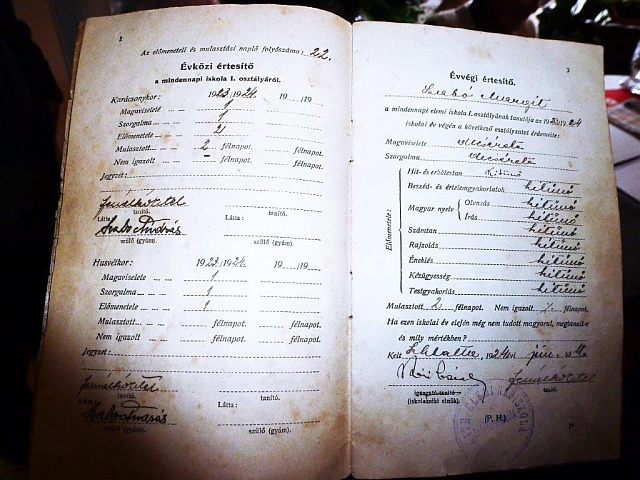 2
Az előmeneteli és mulasztási napló folyószáma: 22.
Évközi értesítő
a mindennapi iskola I. osztályáról.
Karácsonykor: 1923/1924. 19 /19
Magaviselete 1
Szorgalma 1
Előmenetele 2
Mulasztott 2 félnapot. félnapot.
Nem igazolt – félnapot. félnapot.
Jegyzet:
tanító. tanító.
Látta: Látta:
Szabó András
szülő (gyám). szülő (gyám).
Husvétkor: 1923/1924. 19 /19
Magaviselete 1
Szorgalma 1
Előmenetele 1
Mulasztott félnapot. félnapot.
Nem igazolt félnapot. félnapot.
Jegyzet:
tanító. tanító.
Látta: Látta:
Szabó András
szülő (gyám). szülő (gyám).
3
Évvégi értesítő.
Szabó Margit
a mindennapi elemi iskola I. osztályának tanulója az 1923/1924
iskolai év végén a következő osztályzatot érdemelte:
Magaviselete dicséretes
Szorgalma dicséretes
Előmenetele:
Hit- és erkölcstan kitünő
Beszéd- és értelemgyakorlatok kitünő
Magyar nyelv Olvasás kitünő
Irás kitünő
Számtan kitünő
Rajzolás kitünő
Éneklés kitünő
Kézügyesség kitünő
Testgyakorlás kitünő
Mulasztott 2 félnapot. Nem igazolt félnapot.
Ha ezen iskolai év elején még nem tudott magyarul, megtanult-e
és mily mértékben?
Kelt 1924 évi jun.
igazgató-tanító tanító.
(iskolaszéki elnök).
(P. H.)